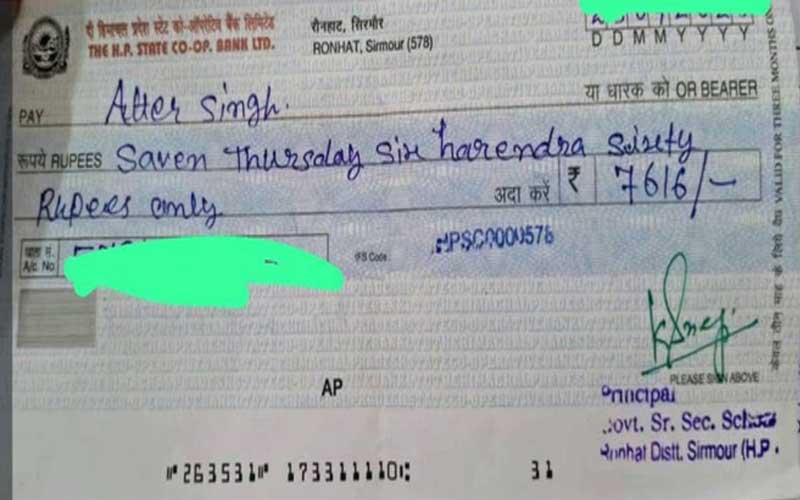 दी हिमाचल प्रदेश स्टेट को-ऑपरेटिव बैंक लिमिटेड
THE H.P. STATE CO-OP. BANK LTD.
रौनहाट, सिरमौर
RONHAT, Sirmour (578)
D D M M Y Y Y Y
PAY Atter Singh. या धारक को OR BEARER
रूपये RUPEES Saven Thursday Six harendra Sixty
Rupees only अदा करें ₹ 7616/-
खाता सं.
A/c. No.
IFS Code HPSC0000578
VALID FOR THREE MONTHS ON
केवल तीन माह के लिये वैध
AP
PLEASE SIGN ABOVE
Principal
Govt. Sr. Sec. School
Ronhat Distt. Sirmour (H.P.
⑈263531⑈ 173311110⑆ 31